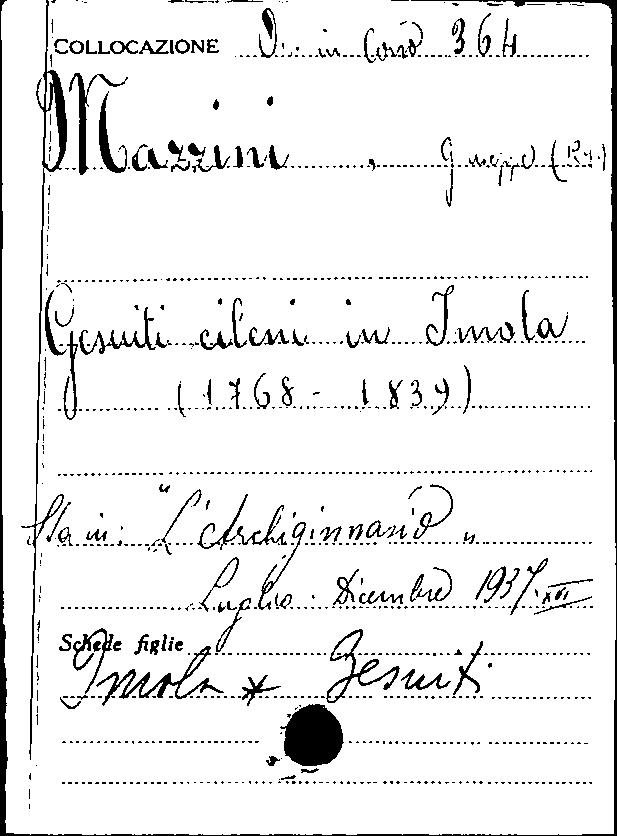 COLLOCAZIONE in Corso 364
Mazzini, Giuseppe
Gesuiti cileni in Imola
(1768 - 1839)
Sta in: "L'Archiginnasio"
Luglio - Dicembre 1937. XVI
Schede figlie
Imola * Gesuiti